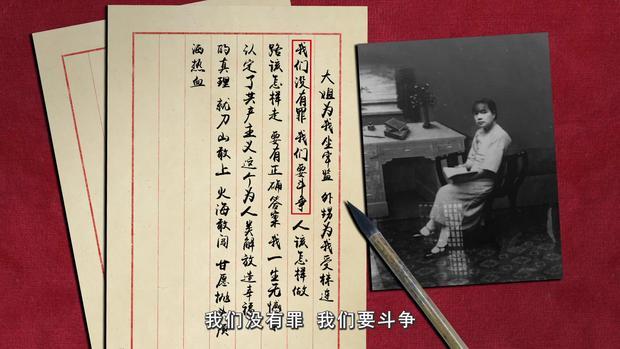 大姐为我坐牢监 外甥为我受株连
我们没有罪 我们要斗争 人该怎样做
路该怎样走 要有正确答案 我一生无
认定了共产主义这个为人类解放造幸
的真理 就刀山敢上 火海敢闯 甘愿抛头
洒热血
我们没有罪 我们要斗争